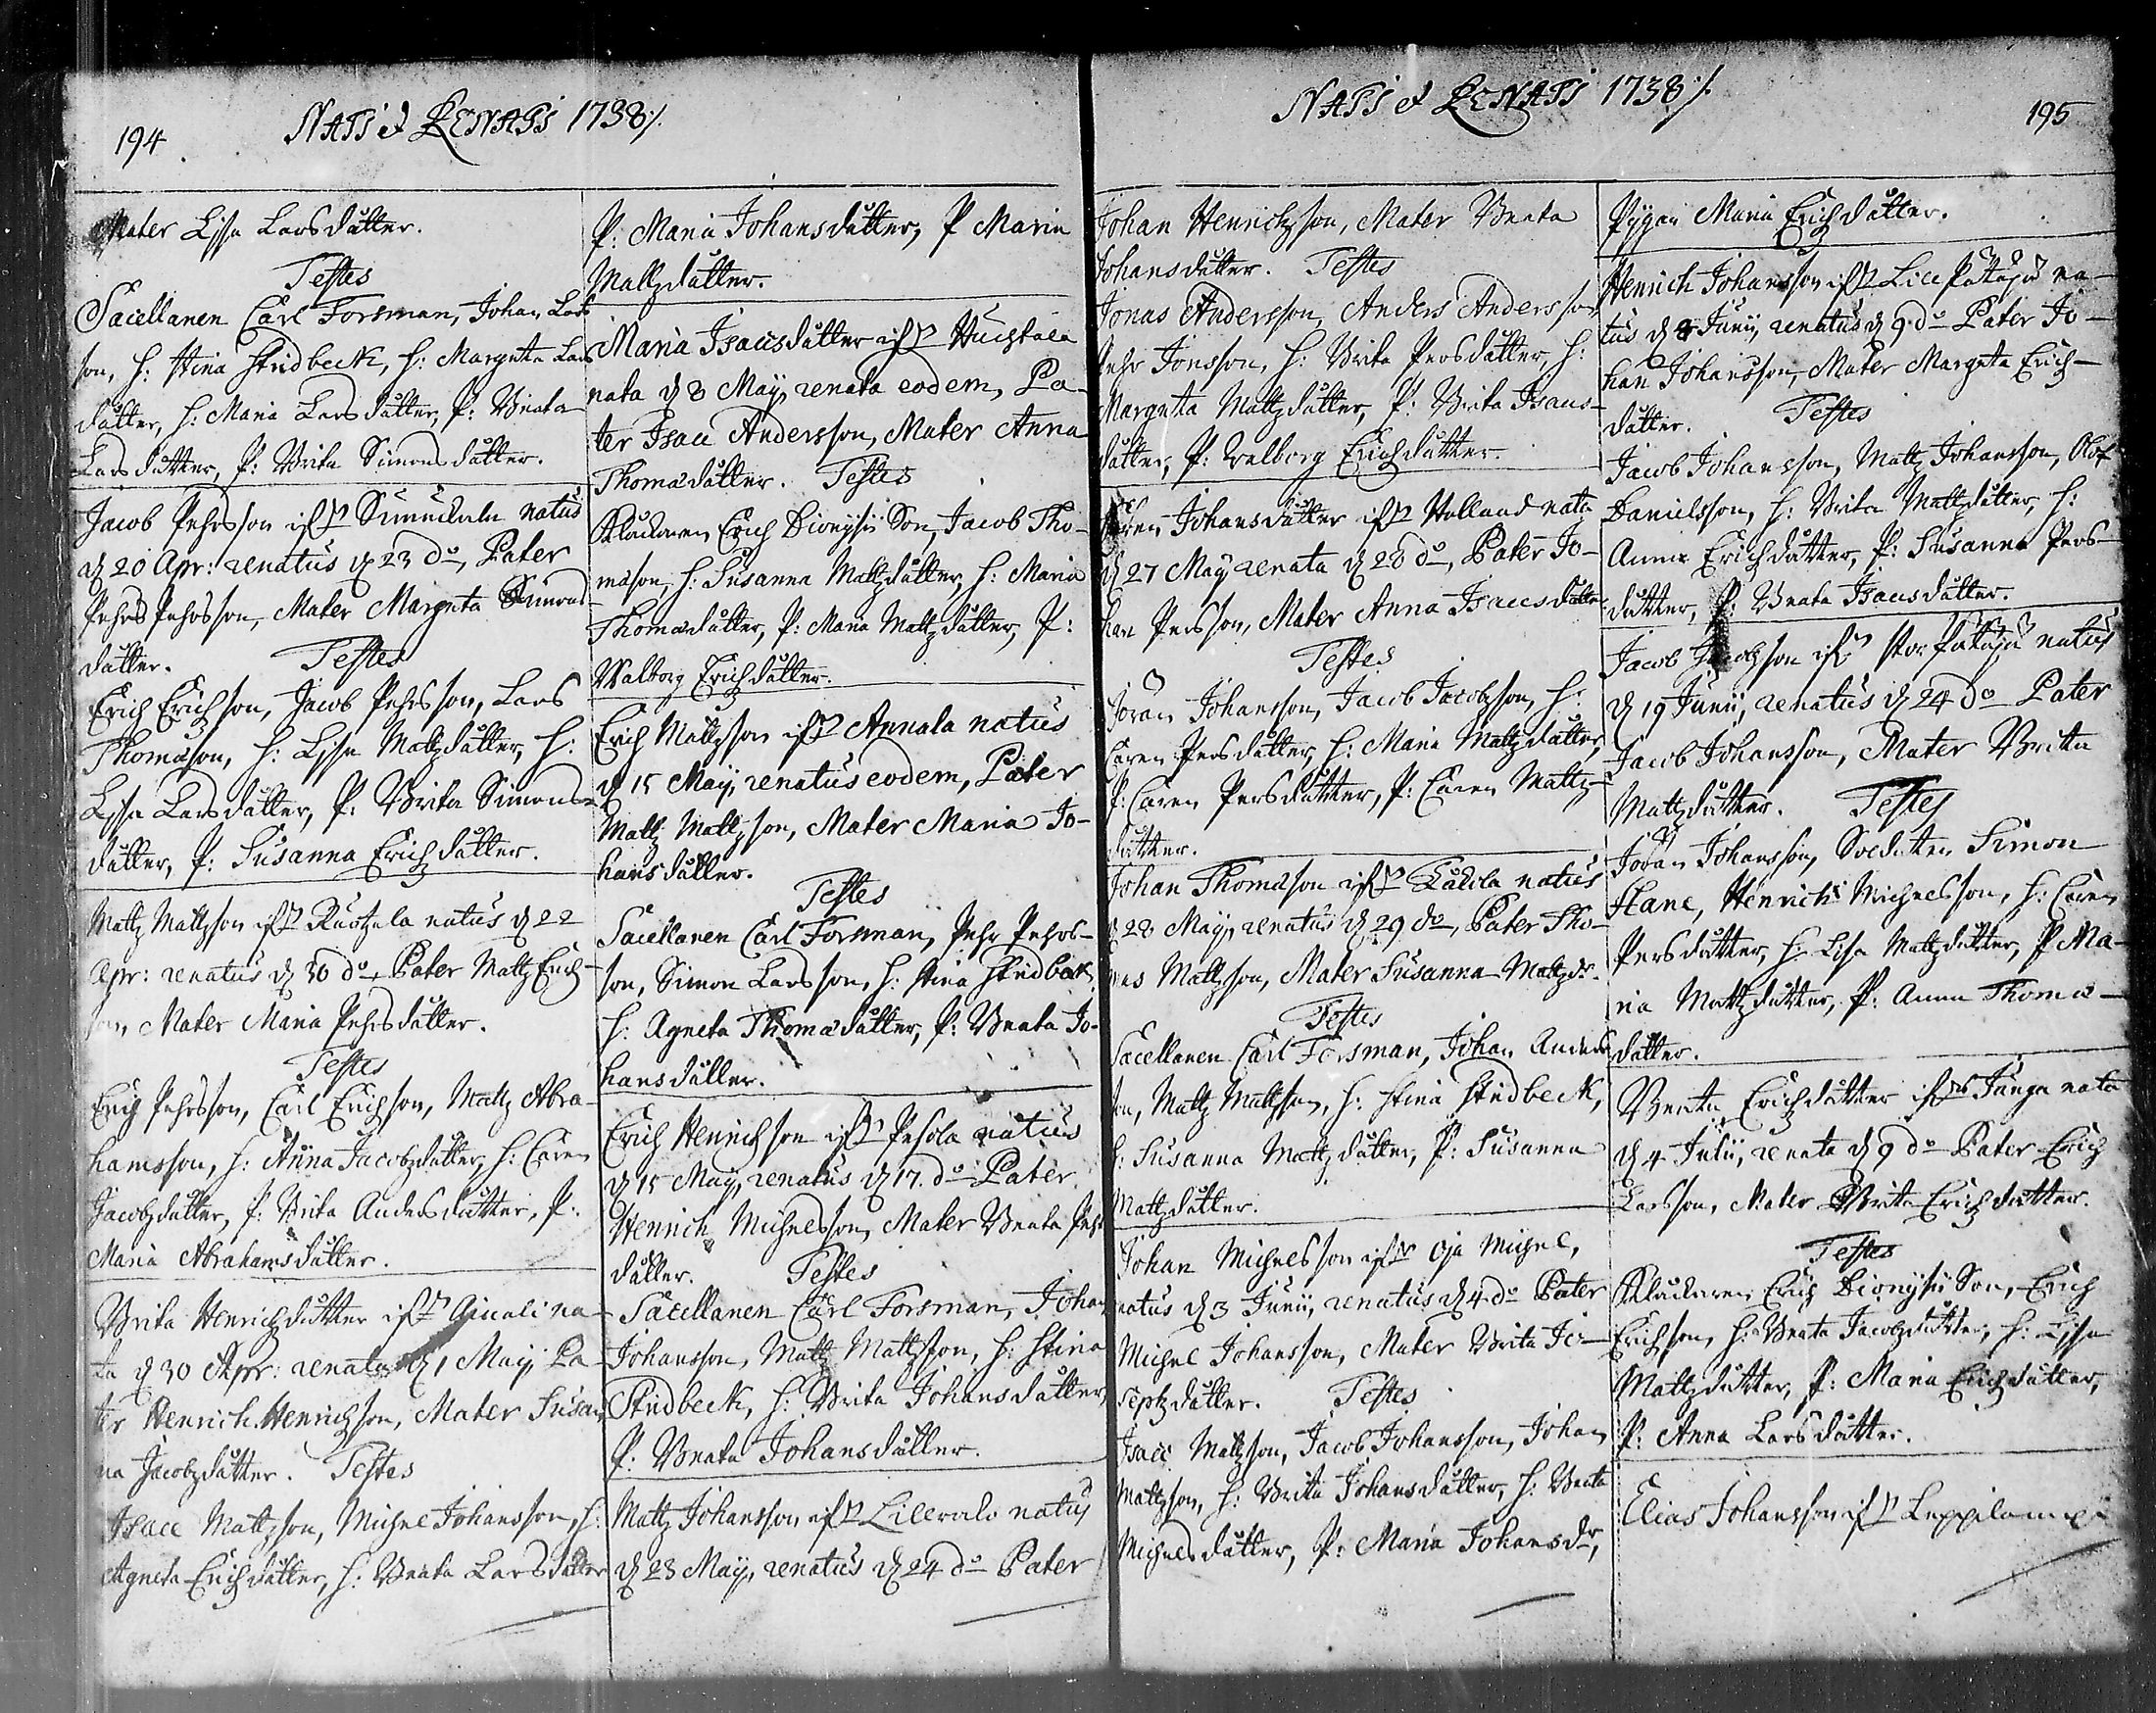 194
NATI & RENATI 1738 ⁒
Mater Lisa Larsdåtter.
Testes
Sacellanen Carl Forsman, Johan Lars
son, H: Stina Studbeck, H: Margeta Lars
dåtter, H: Maria Larsdåtter, P: Beata
Larsdåtter, P: Brita Simonsdåtter.
Jacob Pehrsson ifrå natus
d 20 Apr: renatus d 23 do, Pater
Pehr Pehrsson, Mater Margeta Simons
dåtter. Testes
Erich Erichson, Jacob Pehrsson, Lars
Thomason, H: Lisa Matzdåtter, H:
Lisa Larsdåtter, P: Brita Simons-
dåtter, P: Susanna Erichdåtter.
Matz Matzson ifrå natus d 22
Apr: renatus d 30 do, Pater Matz Erich-
son, Mater Maria Pehrsdåtter.
Testes
Erich Pehrsson, Carl Erichson, Matz Abra-
hamsson, H: Anna Jacobzdåtter, H: Caren
Jacobzdåtter, P: Brita Andersdåtter, P:
Maria Abrahamsdåtter.
Brita Henrichdåtter ifrå Ainali na-
ta d 30 Apr: renata d 1 Maij, Pa-
ter Henrich Henrichson, Mater Susan
na Jacobzdåtter. Testes
Isace Matzson, Michel Johansson, H:
Agneta Erichdåtter, H: Beata Larsdåtter
P: Maria Johansdåtter, P Maria
Matzdåtter.
Maria Isacsdåtter ifrå Huchtala
nata d 8 Maij, renata eodem, Pa-
ter Isac Andersson, Mater Anna
Thomædåtter. Testes
Klåckaren Erich Dionysii Son, Jacob Tho-
mason, H: Susanna Matzdåtter, H: Maria
Thomædåtter, P: Maria Matzdåtter, P:
Walborg Erichdåtter.
Erich Matzson ifrå Annala natus
d 15 Maij, renatus eodem, Pater
Matz Matzson, Mater Maria Jo-
hansdåtter.
Testes
Sacellanen Carl Forsman, Pehr Pehrs-
son, Simon Larsson, H: Stina Studbeck,
H: Agneta Thomædåtter, P: Beata Jo-
hansdåtter.
Erich Henrichson ifrå Pesola natus
d 15 Maij, renatus d 17. do Pater
Henrich Michelsson, Mater Beata Pehrs
dåtter. Testes
Sacellanen Carl Forsman, Johan
Johansson, Matz Matzson, H: Stina
Studbeck, H: Brita Johansdåtter,
P: Beata Johansdåtter.
Matz Johansson ifrå natus
d 23 Maij, renatus d 24 do Pater
NATI & RENATI 1738 ⁒
195
Johan Henrichson, Mater Beata
Johansdåtter. Testes
Jonas Andersson, Anders Andersson
Pehr Jonsson, H: Brita Persdåtter, H:
Margeta Matzdåtter, P: Brita Isacs-
dåtter, P: Walborg Erichdåtter.
Caren Johansdåtter ifrå Holland nata
d 27 Maij renata d 28 do, Pater Jo-
han Persson, Mater Anna Isacsdåtter
Testes
Jöran Johansson, Jacob Jacobzson, H:
Caren Persdåtter, H: Maria Matzdåtter,
P: Caren Persdåtter, P: Caren Matz-
dåtter.
Johan Thomason ifrå natus
d 28 Maij, renatus d 29 do, Pater Tho-
mas Matzson, Mater Susanna Matzdr.
Testes
Sacellanen Carl Forsman, Johan Anders
son, Matz Matzson, H: Stina Studbeck,
H: Susanna Matzdåtter, P: Susanna
Matzdåtter.
Johan Michelsson ifrå Oja Michel,
natus d 3 Junii, renatus d 4 do Pater
Michel Johansson, Mater Brita Jo-
sepzdåtter. Testes
Isac Matzson, Jacob Johansson, Johan
Matzson, H: Brita Johansdåtter, H: Beata
Michelsdåtter, P: Maria Johansdr,
Pygan Maria Erichdåtter.
Henrich Johansson ifrå Lill Patajá na-
tus d 8 Junii, renatus d 9. do Pater Jo-
han Johansson, Mater Margeta Erich-
dåtter. Testes
Jacob Johansson, Matz Johansson, Olof
Danielsson, H: Brita Matzdåtter, H:
Anna Erichdåtter, P: Susanna Pers-
dåtter, P: Beata Isacsdåtter.
Jacob Jacobzson ifrå Stor Patajá natus
d 19 Junii, renatus d 24 do Pater
Jacob Johansson, Mater Brita
Matzdåtter. Testes
Jöran Johansson, Soldaten Simon
Hane, Henrich Michelsson, H: Caren
Persdåtter, H: Lisa Matzdåtter, P Ma-
ria Matzdåtter, P: Anna Thomæ-
dåtter.
Beata Erichdåtter ifrå Kånga nata
d 4 Julii, renata d 9 do Pater Erich
Larsson, Mater Brita Erichdåtter.
Testes
Klåckaren Erich Dionysii Son, Erich
Erichson, H: Beata Jacobzdåtter, H: Lisa
Matzdåtter, P: Maria Erichdåtter,
P: Anna Larsdåtter.
Elias Johansson ifrå Leppilampi